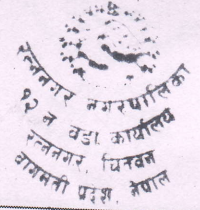 रत्ननगर नगरपालिका
१२ नं वडा कार्यालय
रत्ननगर, चितवन
वागमती प्रदेश, नेपाल